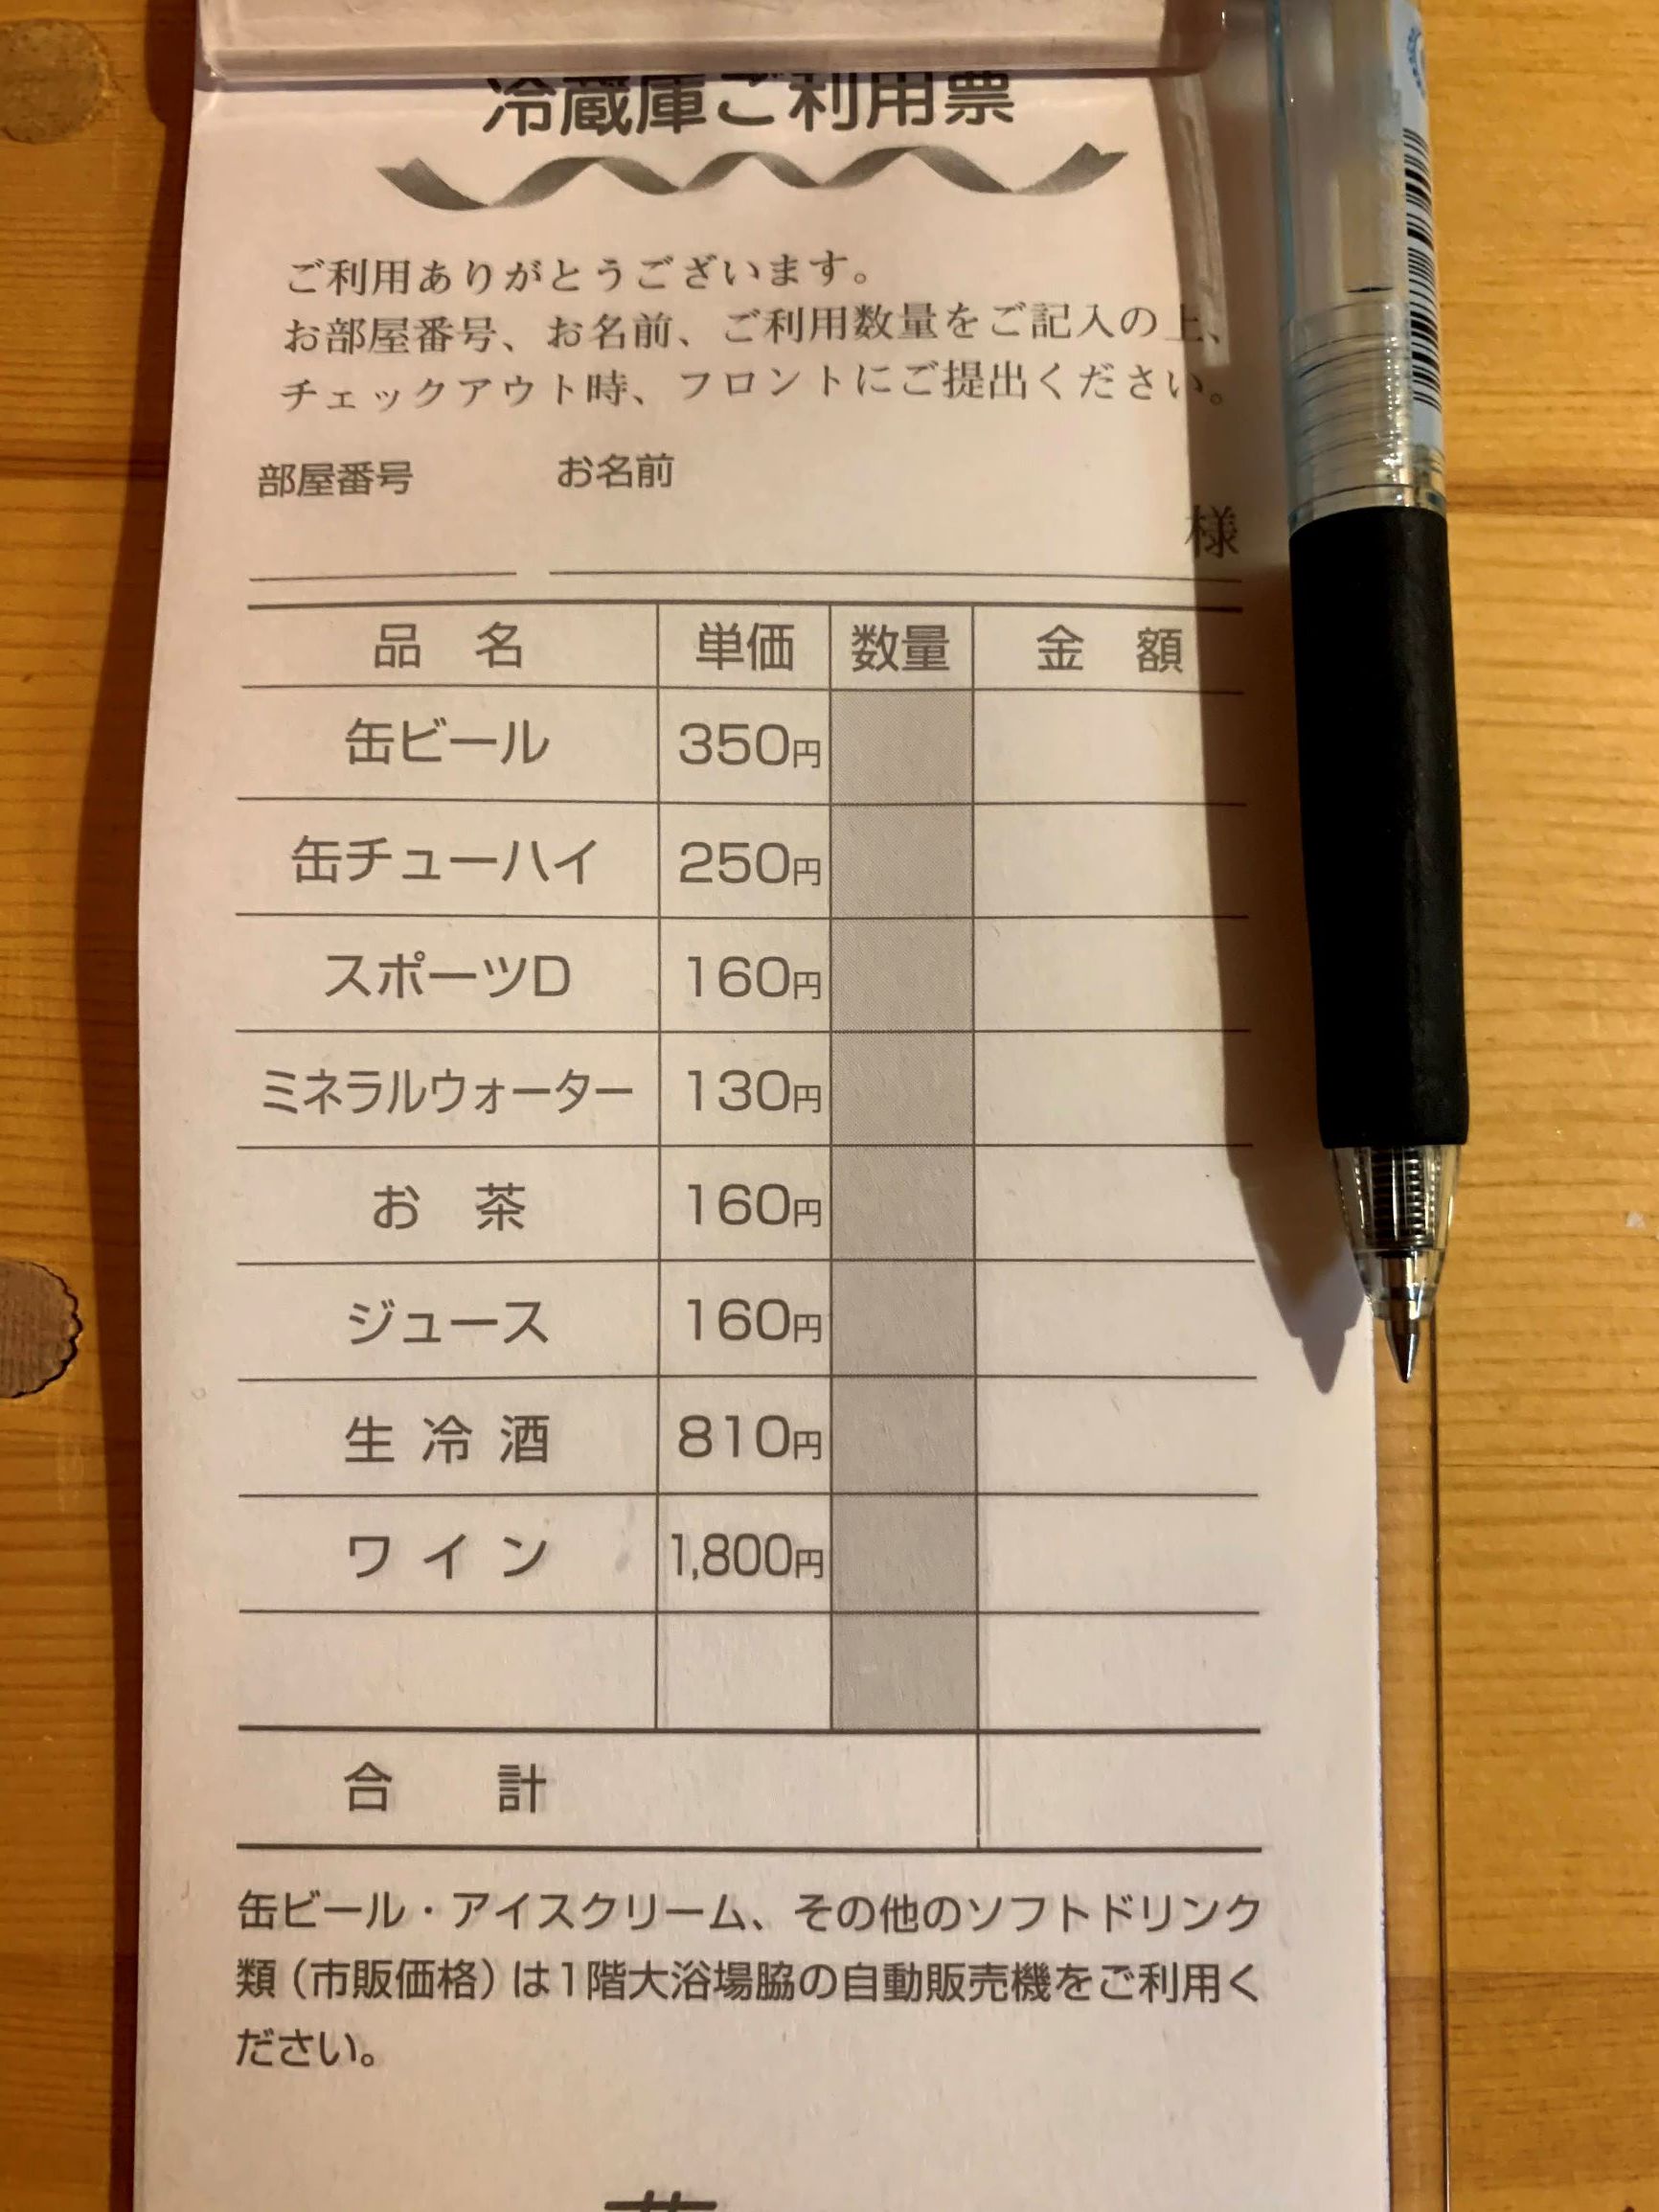 冷蔵庫ご利用票
ご利用ありがとうございます。
お部屋番号、お名前、ご利用数量をご記入の上、
チェックアウト時、フロントにご提出ください。
部屋番号 お名前
様
品 名 単価 数量 金 額
缶ビール 350円
缶チューハイ 250円
スポーツD 160円
ミネラルウォーター 130円
お 茶 160円
ジュース 160円
生 冷 酒 810円
ワ イ ン 1,800円
合 計
缶ビール・アイスクリーム、その他のソフトドリンク
類（市販価格）は1階大浴場脇の自動販売機をご利用く
ださい。